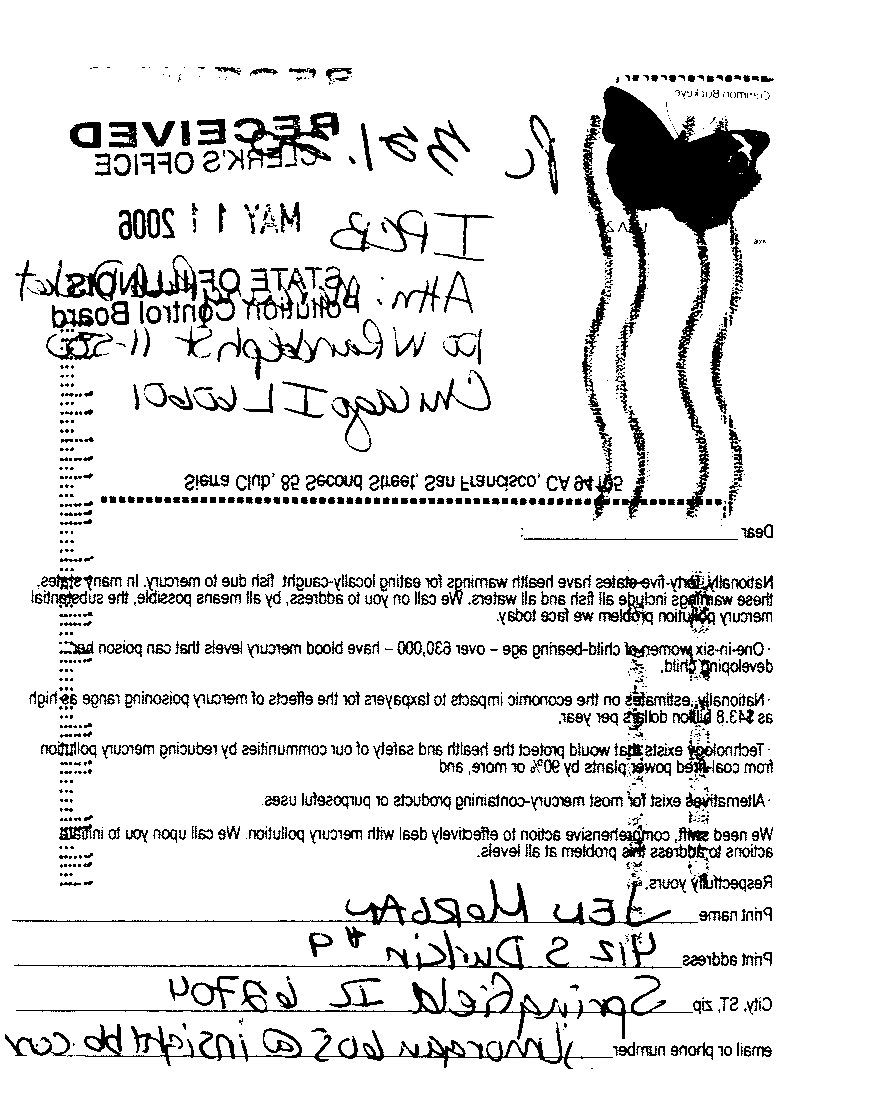 Common Buckeye
PC
RECEIVED
CLERK'S OFFICE
MAY 11 2006
IPCB
STATE OF ILLINOIS
Attn:
Pollution Control Board
100 W Randolph St 11-500
Chicago IL 60601
Sierra Club, 85 Second Street, San Francisco, CA 94105
Dear
Nationally, forty-five states have health warnings for eating locally-caught fish due to mercury. In many states,
these warnings include all fish and all waters. We call on you to address, by all means possible, the substantial
mercury pollution problem we face today.
· One-in-six women of child-bearing age – over 630,000 – have blood mercury levels that can poison her
developing child,
· Nationally, estimates on the economic impacts to taxpayers for the effects of mercury poisoning range as high
as $43.8 billion dollars per year,
· Technology exists that would protect the health and safety of our communities by reducing mercury pollution
from coal-fired power plants by 90% or more, and
· Alternatives exist for most mercury-containing products or purposeful uses.
We need swift, comprehensive action to effectively deal with mercury pollution. We call upon you to initiate
actions to address this problem at all levels.
Respectfully yours,
Print name JEN MORGAN
Print address 412 S Durkin #9
City, ST, zip Springfield IL 62704
email or phone number jlmorgan605@insightbb.com